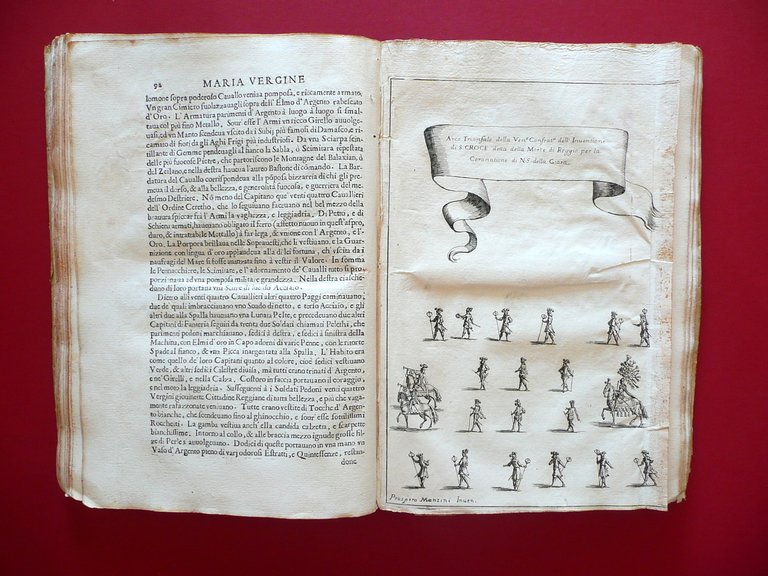 92 MARIA VERGINE
lomone sopra poderoso Cauallo veniua pomposa, e riccamente armato,
Vn gran Cimiero suolazzauagli sopra dell' Elmo d'Argento rabescato
d'Oro. L'Armatura parimenti d'Argento à luogo à luogo si smal-
taua col più fino Metallo. Sour' esse l'Armi vn ricco Girello auuolge-
uasi, ed vn Manto scendeua vscito da i Subij più famosi di Damasco, e ri-
camato di fiori da gli Aghi Frigi più industriosi. Da vna Sciarpa scin-
tillante di Gemme pendeuagli al fianco la Sabla, ò Scimitara tempestata
delle più fuocose Pietre, che partoriscono le Montagne del Balaxian, ò
del Zeilano, e nella destra haueua l'aureo Bastone di comando. La Bar-
datura del Cauallo corrispondeua alla põposa bizzarria di chi gli preme-
ua il dorso, & alla bellezza, e generosità fuocosa, e guerriera del me-
desmo Destriere. Nõ meno del Capitano que' venti quattro Cauallieri
dell'Ordine Ceretho, che lo seguiuano faceuano nel bel mezzo della
brauura spiccar frà l'Armi la vaghezza, e leggiadria. Di Petto, e di
Schiena armati, haueuano obligato il ferro (affetto nuouo in quest'aspro,
duro, & intrattabile Mettallo) à far lega, & vnione con l'Argento, e l'-
Oro. La Porpora brillaua nelle Soprauesti, che li vestiuano, e la Guar-
nizione con lingua d'oro applaudeua alla lei fortuna, ch' vscita da i
naufragi del Mare si fosse auanzata fino à vestir il Valore. In somma
le Pennacchiere, le Scimitare, e l'adornamento de' Caualli tutto si spro-
porzionaua ad vna pomposa militar grandezza. Nella destra ciasche-
duno di loro portaua vna Scure di lucido Acciaio.
Dietro alli venti quattro Cauallieri altri quattro Paggi caminauano,
due de' quali imbracciauano vno Scudo di netto, e terso Acciaio, e gli
altri due alla Spalla haueuano vna Lunata Pelte, e precedeuano due altri
Capitani di Fanteria seguiti da trenta due Soldati chiamati Pelethi, che
parimenti pedoni marchiauano, sedici à destra, e sedici à sinistra della
Machina, con Elmi d'oro in Capo adorni di varie Penne, con le nuote
Spade al fianco, & vna Picca inargentata alla Spalla. L'Habito era
come quello de' loro Capitani quanto al colore, cioè sedici vestiuano
Verde, & altri sedici Celestre diuisa, mà tutti erano trinati d'Argento,
e ne' Girelli, e nella Calza. Costoro in faccia portauano il coraggio,
e nel moto la leggiadria. Susseguenti à i Soldati Pedoni venti quattro
Vergini giouinette Cittadine Reggiane di rara bellezza, e più che vaga-
mente rafazzonate veniuano. Tutte erano vestite di Tocche d'Argen-
to bianche, che scendeuano fino al ghinocchio, e sour' esse sottilissimi
Rocchetti. La gamba vestiua anch'essa candida calzetta, e scarpette
bianchissime. Intorno al collo, & alle braccia mezzo ignude grosse fil-
ze di Perle s'auuolgeuano. Dodici di queste portauano in vna mano vn
Vaso d'Argento pieno di varj odorosi Estratti, e Quintessenze, restan-
done
Arco Trionfale della Venᵃ Confratᵃ dell' Inuentione
di S. CROCE detta della Morte di Reggio per la
Coronatione di N.S. della Giara.
Prospero Manzini Inuen.